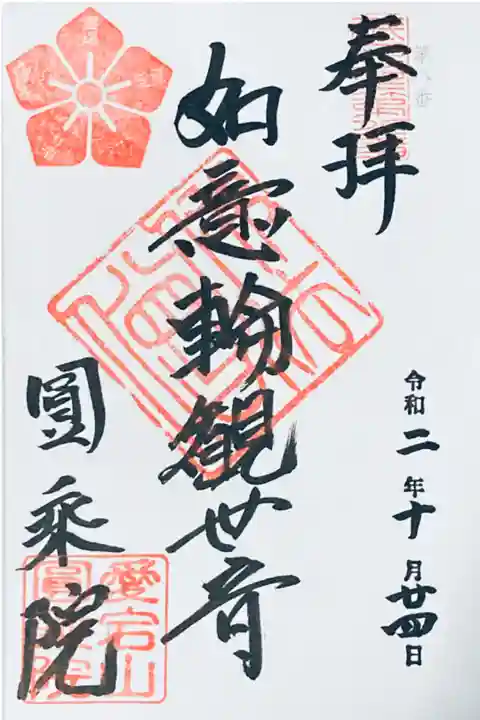 奉拝
令和二年十月廿四日
如意輪観世音
圓乗院
愛宕山
圓乗院